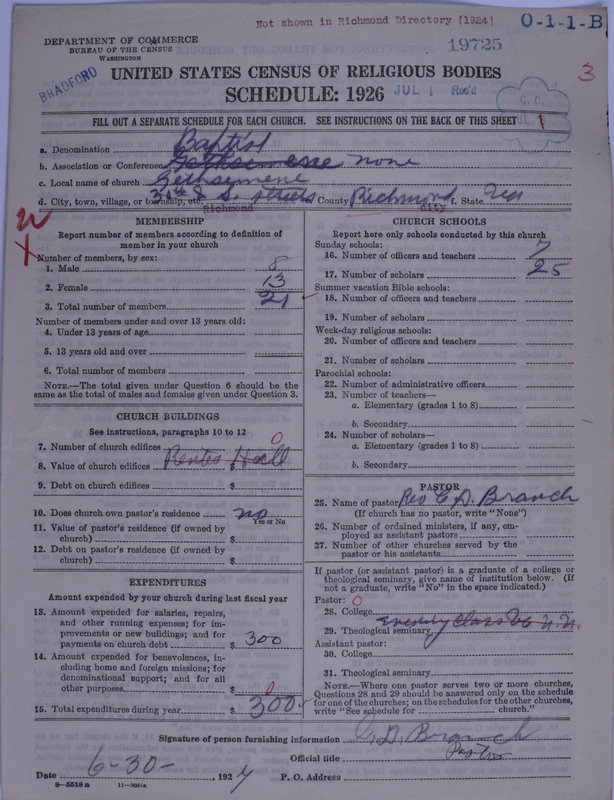 Not shown in Richmond Directory (1924)
O-1-1-B
DEPARTMENT OF COMMERCE
BUREAU OF THE CENSUS
WASHINGTON
19725
BRADFORD
3
UNITED STATES CENSUS OF RELIGIOUS BODIES
SCHEDULE: 1926
JUL 1 Rec'd
C. C.
JUL 1
FILL OUT A SEPARATE SCHEDULE FOR EACH CHURCH. SEE INSTRUCTIONS ON THE BACK OF THIS SHEET
a. Denomination Baptist
b. Association or Conference Gethsemene none
c. Local name of church Gethsymene
d. City, town, village, or township, etc. 31st & S. streets e. County Richmond f. State Va
Richmond city
MEMBERSHIP
Report number of members according to definition of member in your church
Number of members, by sex:
1. Male 8
2. Female 13
3. Total number of members 21
Number of members under and over 13 years old:
4. Under 13 years of age
5. 13 years old and over
6. Total number of members
NOTE.—The total given under Question 6 should be the same as the total of males and females given under Question 3.
CHURCH BUILDINGS
See instructions, paragraphs 10 to 12
7. Number of church edifices 0
8. Value of church edifices Rented Hall $
9. Debt on church edifices $
10. Does church own pastor's residence? no
Yes or No
11. Value of pastor's residence (if owned by church) $
12. Debt on pastor's residence (if owned by church) $
EXPENDITURES
Amount expended by your church during last fiscal year
13. Amount expended for salaries, repairs, and other running expenses; for improvements or new buildings; and for payments on church debt $ 300
14. Amount expended for benevolences, including home and foreign missions; for denominational support; and for all other purposes $ 0
15. Total expenditures during year $ 300
CHURCH SCHOOLS
Report here only schools conducted by this church
Sunday schools:
16. Number of officers and teachers 7
17. Number of scholars 25
Summer vacation Bible schools:
18. Number of officers and teachers
19. Number of scholars
Week-day religious schools:
20. Number of officers and teachers
21. Number of scholars
Parochial schools:
22. Number of administrative officers
23. Number of teachers—
a. Elementary (grades 1 to 8)
b. Secondary
24. Number of scholars—
a. Elementary (grades 1 to 8)
b. Secondary
PASTOR
25. Name of pastor Rev C. D. Branch
(If church has no pastor, write "None")
26. Number of ordained ministers, if any, employed as assistant pastors
27. Number of other churches served by the pastor or his assistants
If pastor (or assistant pastor) is a graduate of a college or theological seminary, give name of institution below. (If not a graduate, write "No" in the space indicated.)
Pastor: 0
28. College
29. Theological seminary Evening Class Va U.
Assistant pastor:
30. College
31. Theological seminary
NOTE.—Where one pastor serves two or more churches, Questions 28 and 29 should be answered only on the schedule for one of the churches; on the schedules for the other churches, write "See schedule for church."
Signature of person furnishing information C. D. Branch
Official title Pastor
Date 6-30-, 1927 P. O. Address
8-5518 a